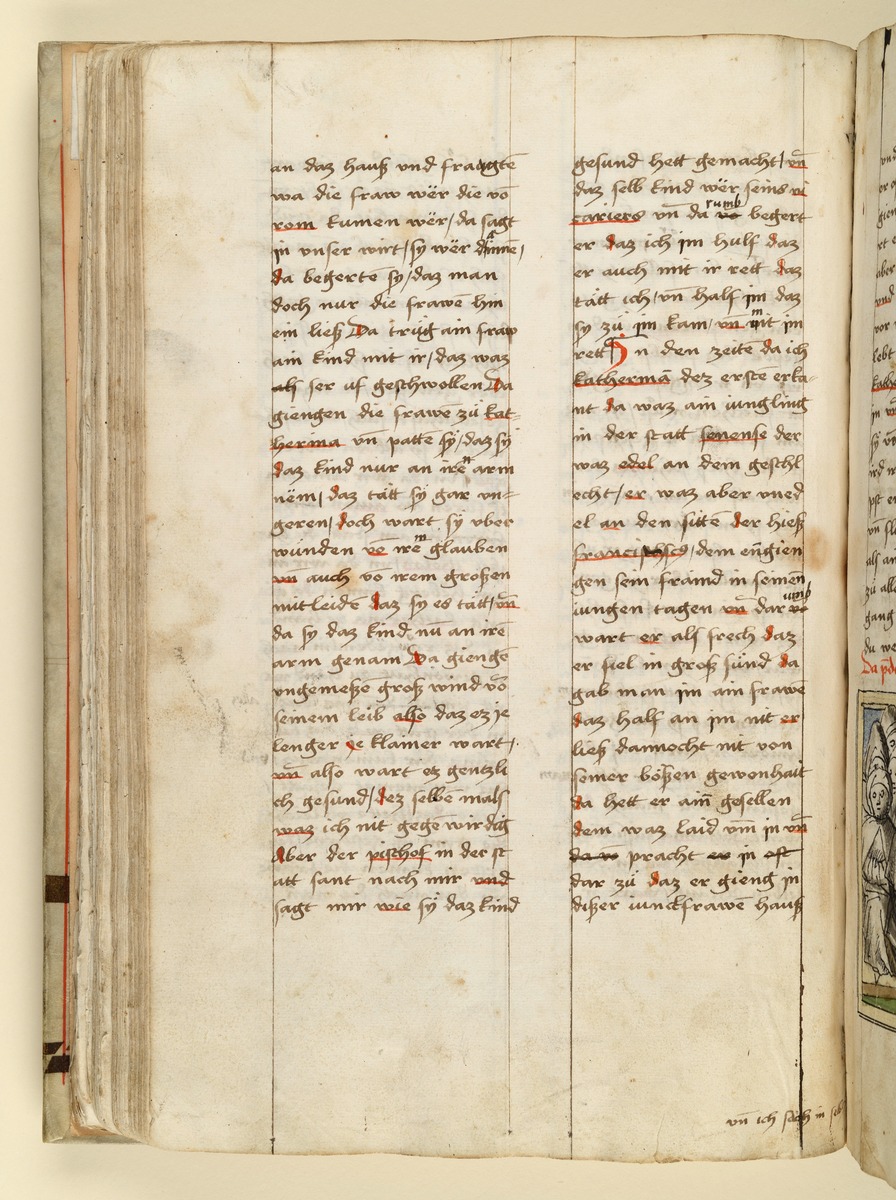 an daz hauß vnd fragtē
wa die fraw wër die vō
rom kumen wër / da sagt
in vnser wirt / sy wër dinnē /
da begertē sy / daz man
doch nur die frawe hin
ein ließ Da trůg ain fraw
ain kind mit ir / daz waz
als ser uf geschwollen Da
giengen die frawē zů kat-
herina vn̄ pattē sÿ / daz sÿ
daz kind nur an irē n arm
nëm / daz tätt sÿ gar vn=
geren / doch wart sÿ vber
wunden vō irē m glauben
vn̄ auch vō irem großen
mitleidē daz sy es tätt / vn̄
da sy daz kind nū an irē
arm genam Da giengē
vngemeßē groß wind vō
seinem leib also daz ez ie
lenger ie klainer wart /
vn̄ also wart ez gentzli
ch gesund / dez selbē mals
waz ich nit gegēwirdig
Aber der pischof in der st
att sant nach mir vnd
sagt mir wie sÿ daz kind
gesund hett gemacht / vn̄
daz selb kind wër seins vi
cariers vn̄ da rumb vō begert
er daz ich im hulf daz
er auch mit ir rett daz
tätt ich / vn̄ half im daz
sy zů im kam / vn̄ mit im
rett In den zeitē da ich
katherinā dez erste erka-
nt da waz ain iungling
in der statt senense der
waz edel an dem geschl
echt / er waz aber vned
el an den sittē der hieß
francischses / dem en̄gien
gen sein fraind in seinen̄
iungen tagen vn̄ dar umb vō
wart er als frech daz
er fiel in groß sünd da
gab man im ain frawē
daz half an im nit er
ließ dannocht nit von
seiner bößen gewonhait
da hett er ain̄ gesellen
dem waz laid vm̄ in vn̄
da vō pracht er in oft
dar zů daz er gieng in
dißer iunckfrawē hauß
vn̄ ich sach in